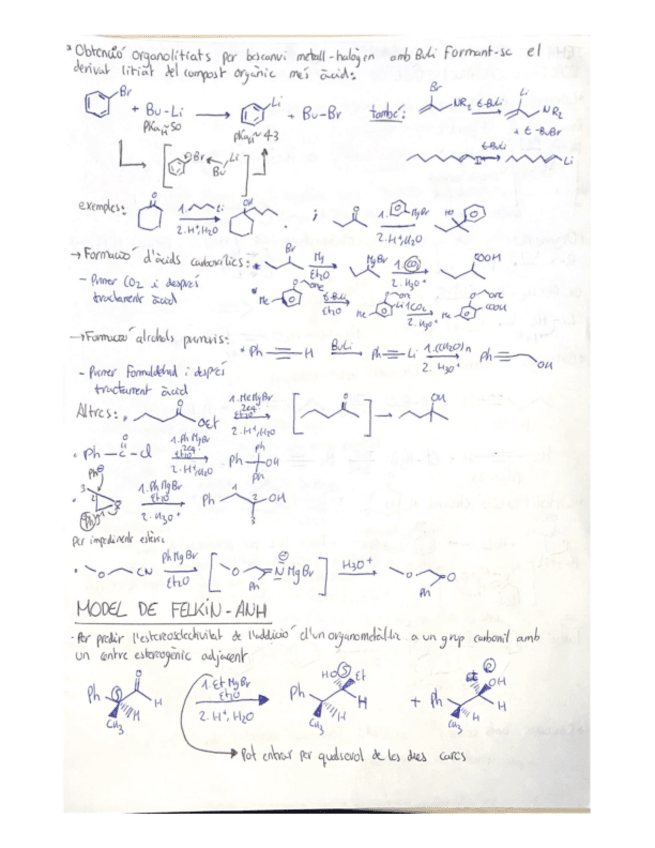 Obtenció organolitiats per bescanvi metall-halògen amb BuLi Formant-se el
derivat litiat del compost orgànic més àcid:
Br + Bu-Li → Li + Bu-Br
pKa ~50 pKa ~43
també: Br NR2 t-BuLi Li NR2
+ t-BuBr
Br Li
Bu
I t-BuLi Li
exemples: O 1. Li OH ; O 1. MgBr HO
2. H+, H2O 2. H+, H2O
→ Formació d'àcids carboxílics: Br Mg Et2O MgBr 1. CO2 2. H3O+ COOH
- Primer CO2 i després
tractament àcid
Me t-BuLi Et2O Me Li 1. CO2 2. H3O+ Me COOH
→ Formació alcohols primaris:
Ph H BuLi Ph Li 1. (CH2O)n 2. H3O+ Ph OH
- Primer Formaldehid i després
tractament àcid
Altres: O OEt 1. MeMgBr 2eq. Et2O 2. H+, H2O O OH
Ph-C-Cl O 1. PhMgBr 2eq. Et2O 2. H+, H2O Ph Ph OH Ph
Ph⊖
3 2 1 O 1. PhMgBr Et2O 2. H3O+ Ph 1 2 OH 3
Ph
Per impediment estèric
O CN PhMgBr Et2O O N MgBr Ph H3O+ O O Ph
MODEL DE FELKIN-ANH
· Per predir l'estereoselectivitat de l'addició d'un organometàl·lic a un grup carbonil amb
un centre estereogènic adjacent
Ph S O H H CH3 1. EtMgBr Et2O 2. H+, H2O HO S Et Ph H H CH3 + Et R OH Ph H H CH3
Pot entrar per qualsevol de les dues cares